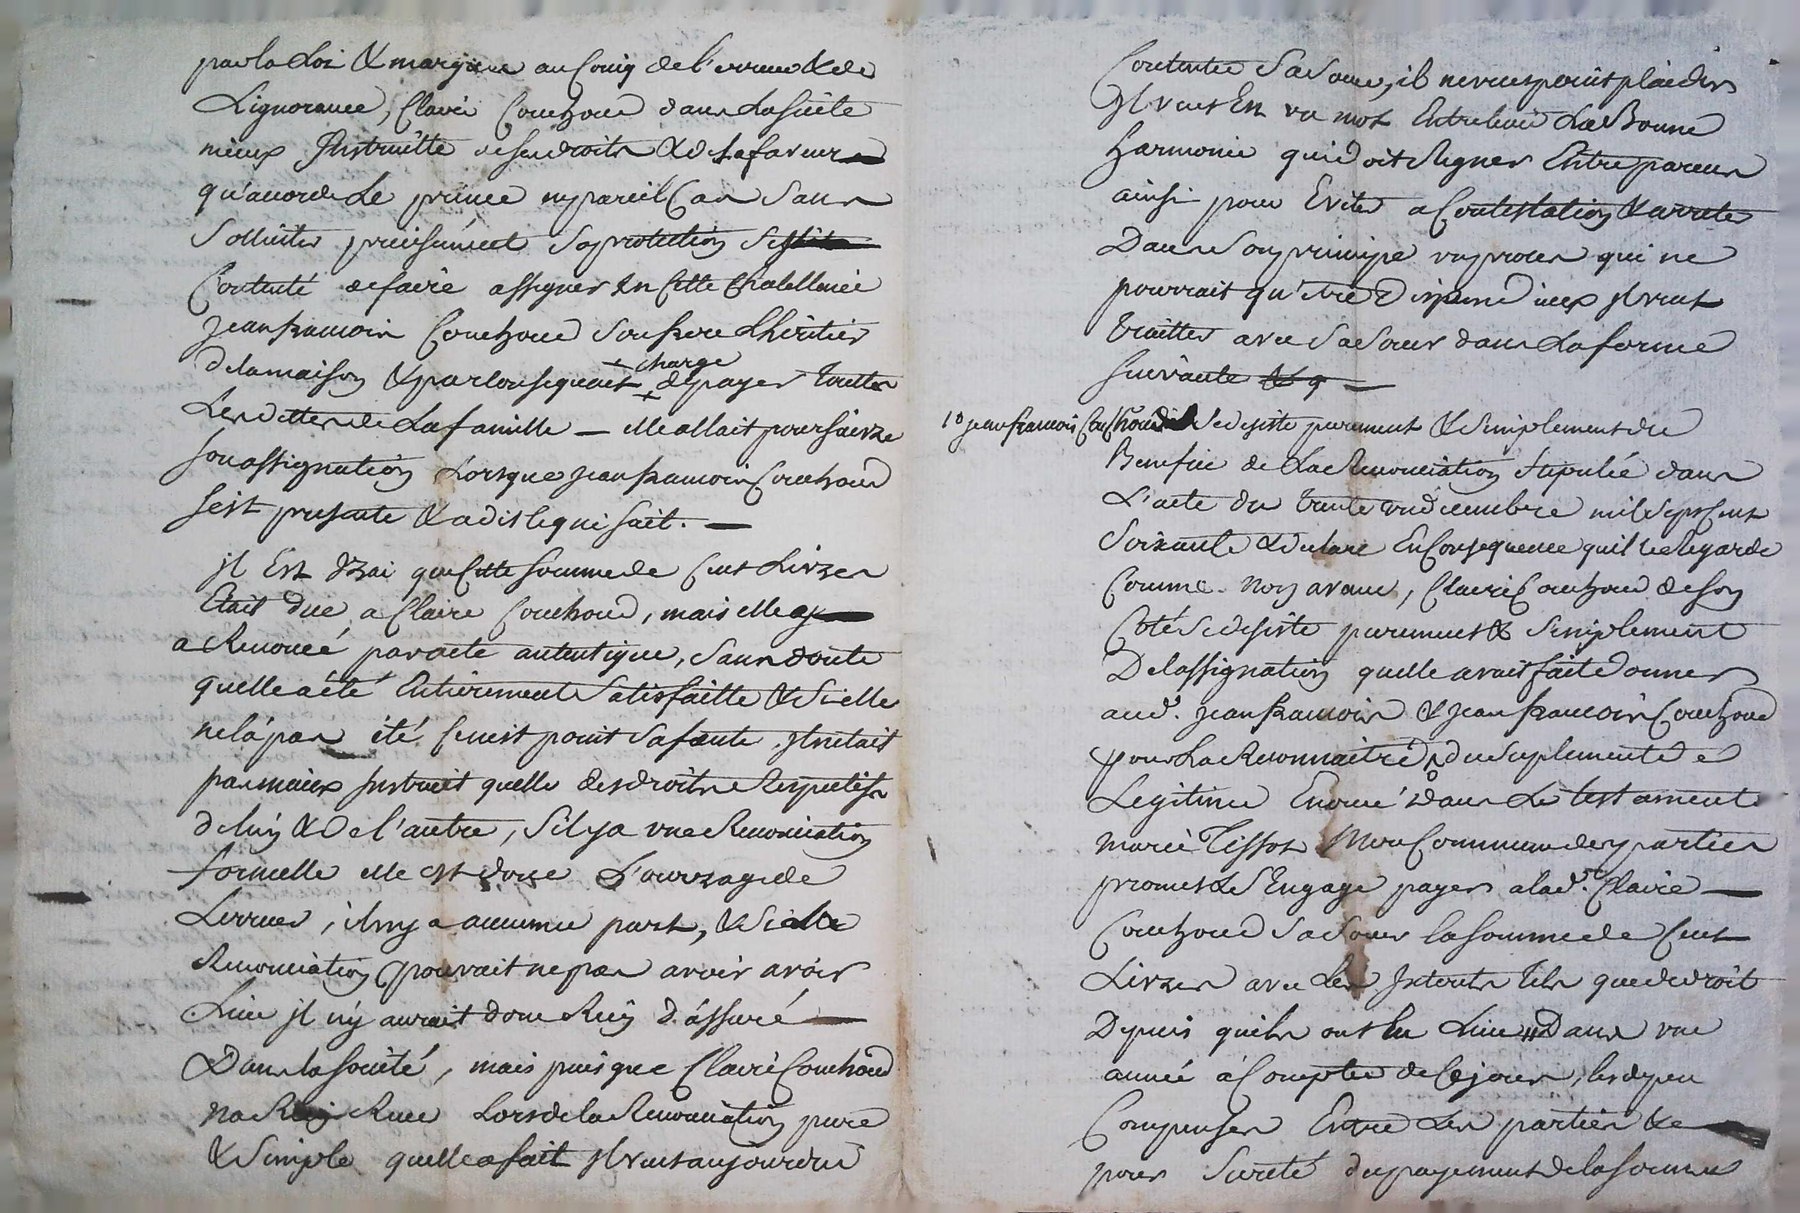 par la Loi & marquée au Coing de l'erreur & de
L'ignorance, Claire Couchoud dans La suite
mieux Instruitte de ses droits & de la faveur
qu'accorde Le prince en pareil Cas Sans
Solliciter précisément Sa protection Sest
Contenté de faire assigner En Cette Chatellenie
jean francois Couchoud Son frere L'héritier
de la maison & par Consequent + charge + de payer Toutes
Les dettes de La famille — elle allait poursuivre
Son assignation Lorsque jean francois Couchoud
Sest presente & a dit Ce qui Suit. —
jl Est Vrai que Cette Somme de Cent Livres
Etait due a Claire Couchoud, mais elle y
a Renoncé par acte autentique, Sans doute
quelle a été Entièrement Satisfaitte & Si elle
ne la pas été Ce nest point Sa faute, jl netait
pas mieux Instruit quelle des droits Respectifs
de luy & De l'autre, Sil y a une Renonciation
formelle elle est donc L'ouvrage de
L'erreur, il n'y a aucune part, & Si cette
Renonciation pouvait ne pas avoir avoir
Lieu jl n'y aurait donc Rien d'assuré
Dans la Société, mais puisque Claire Couchoud
na Rien Recu Lors de la Renonciation pure
& Simple quelle a fait jl veut aujourdui
Contenter Sa Soeur, il ne veut point plaider
jl veut En un mot Entretenir La Bonne
harmonie qui doit Regner Entre parens
ainsi pour Eviter a Contestation & arreter
Dans Son principe un proces qui ne
pourrait qu'etre Dispendieux jl veut
traitter avec Sa Soeur dans La forme
Suivante
1o jean francois Couchoud Se desiste purement & Simplement du
Benefice de La Renonciation Stipulée dans
L'acte du trente un decembre mil Sept Cent
Soixante & declare En Consequence quil la Regarde
Comme Non avenue, Claire Couchoud de Son
Coté Se desiste purement & Simplement
De lassignation quelle avait faite donner
aud. jean francois & jean francois Couchoud
pour La Reconnaitre du Suplement de
Legitime Enoncé dans Le testament
marie Tissot Mere Commune des parties
promet & S'Engage payer a lad. Claire
Couchoud Sa Soeur la Somme de Cent
Livres avec Les Interets Tels que de droit
Depuis quils ont eu Lieu Dans une
année à Compter de Ce jour, les depens
Compensés Entre Les parties &
pour Sureté du payement de la Somme